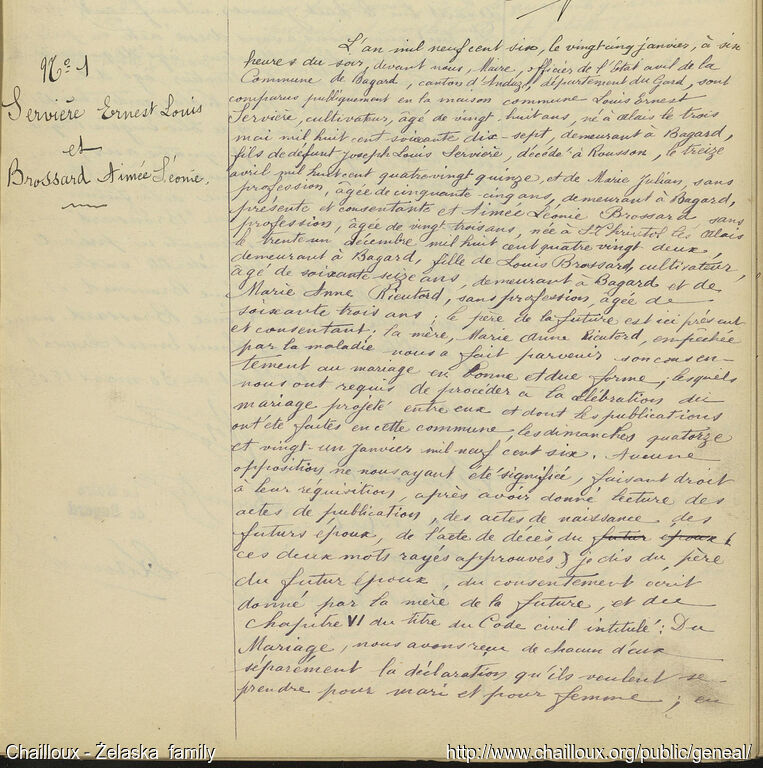 No 1
Servière Ernest Louis
et
Brossard Aimée Léonie.
L'an mil neuf cent six, le vingt cinq janvier, à six
heures du soir, devant nous, Maire, officier de l'Etat civil de la
Commune de Bagard, canton d'Anduze, département du Gard, sont
comparus publiquement en la maison commune Louis Ernest
Servière, cultivateur, âgé de vingt-huit ans, né à Alais le trois
mai mil huit cent soixante dix-sept, demeurant à Bagard,
fils de défunt Joseph Louis Servière, décédé à Rousson, le treize
avril mil huit cent quatre vingt quinze, et de Marie Julian, sans
profession, âgée de cinquante cinq ans, demeurant à Bagard,
présente et consentante et Aimée Léonie Brossard sans
profession, âgée de vingt trois ans, née à St Christol les Alais
le trente un décembre mil huit cent quatre vingt deux,
demeurant à Bagard, fille de Louis Brossard, cultivateur,
âgé de soixante seize ans, demeurant à Bagard et de
Marie Anne Rieutord, sans profession, âgée de
soixante trois ans; le père de la future est ici présent
et consentant; la mère, Marie Anne Rieutord, empêchée
par la maladie nous a fait parvenir son consen-
tement au mariage en bonne et due forme; lesquels
nous ont requis de procéder à la célébration du
mariage projeté entre eux et dont les publications
ont été faites en cette commune, les dimanches quatorze
et vingt-un janvier mil neuf cent six. Aucune
opposition ne nous ayant été signifiée, faisant droit
à leur réquisition, après avoir donné lecture des
actes de publication, des actes de naissance des
futurs époux, de l'acte de décès du futur époux (
ces deux mots rayés approuvés) je dis du père
du futur époux, du consentement écrit
donné par la mère de la future, et du
chapitre VI du titre du Code civil intitulé: Du
Mariage, nous avons reçu de chacun d'eux
séparément la déclaration qu'ils veulent se
prendre pour mari et pour femme; en
Chailloux - Żelaska family
http://www.chailloux.org/public/geneal/